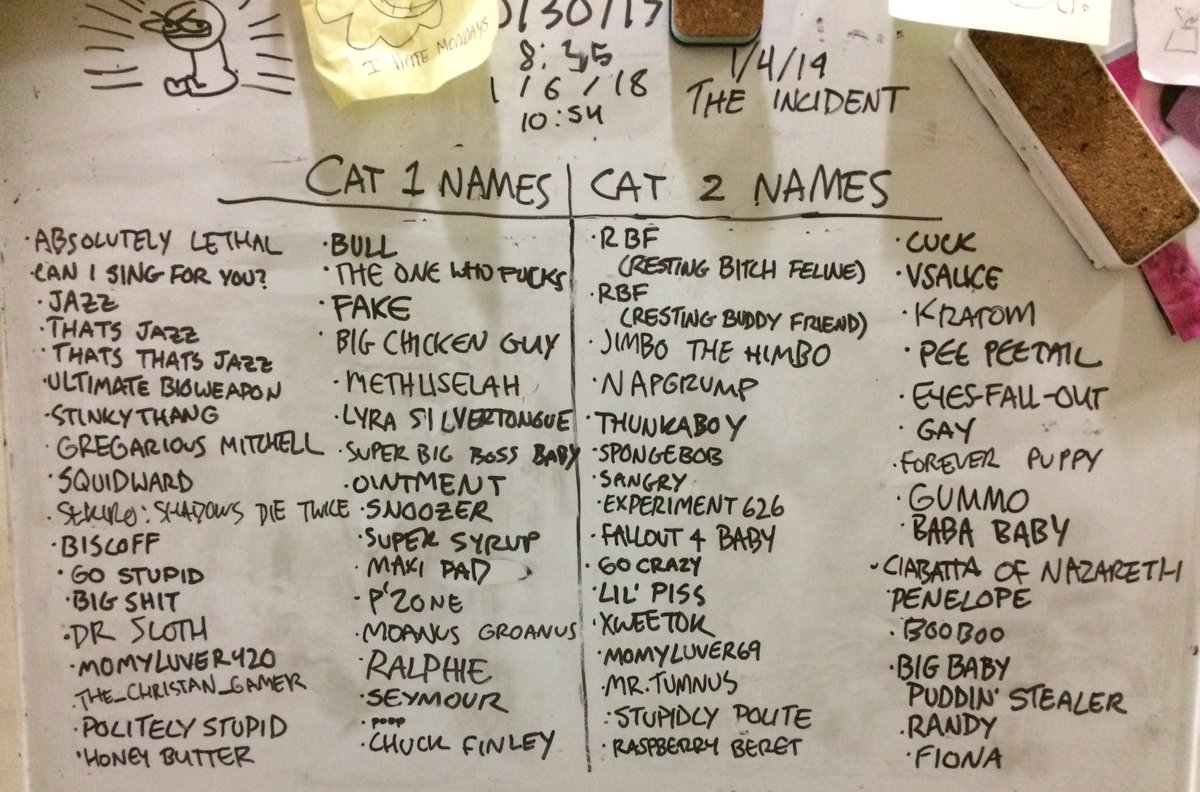 I HATE MONDAYS
8:35
1/6/18
10:54
1/4/19
THE INCIDENT
CAT 1 NAMES
·ABSOLUTELY LETHAL
·CAN I SING FOR YOU?
·JAZZ
·THATS JAZZ
·THATS THATS JAZZ
·ULTIMATE BIOWEAPON
·STINKY THANG
·GREGARIOUS MITCHELL
·SQUIDWARD
·SEKIRO: SHADOWS DIE TWICE
·BISCOFF
·GO STUPID
·BIG SHIT
·DR SLOTH
·MOMYLUVER420
·THE_CHRISTAN_GAMER
·POLITELY STUPID
·HONEY BUTTER
·BULL
·THE ONE WHO FUCKS
·FAKE
·BIG CHICKEN GUY
·METHUSELAH
·LYRA SILVERTONGUE
·SUPER BIG BOSS BABY
·OINTMENT
·SNOOZER
·SUPER SYRUP
·MAXI PAD
·P'ZONE
·MOANUS GROANUS
·RALPHIE
·SEYMOUR
·poop
·CHUCK FINLEY
CAT 2 NAMES
·RBF
(RESTING BITCH FELINE)
·RBF
(RESTING BUDDY FRIEND)
·JIMBO THE HIMBO
·NAPGRUMP
·THUNKABOY
·SPONGEBOB
·SANGRY
·EXPERIMENT 626
·FALLOUT 4 BABY
·GO CRAZY
·LIL' PISS
·XWEETOK
·MOMYLUVER69
·MR. TUMNUS
·STUPIDLY POLITE
·RASPBERRY BERET
·CUCK
·VSAUCE
·KRATOM
·PEE PEETAIL
·EYES-FALL-OUT
·GAY
·FOREVER PUPPY
·GUMMO
·BABA BABY
·CIABATTA OF NAZARETH
·PENELOPE
·BOOBOO
·BIG BABY
PUDDIN' STEALER
·RANDY
·FIONA